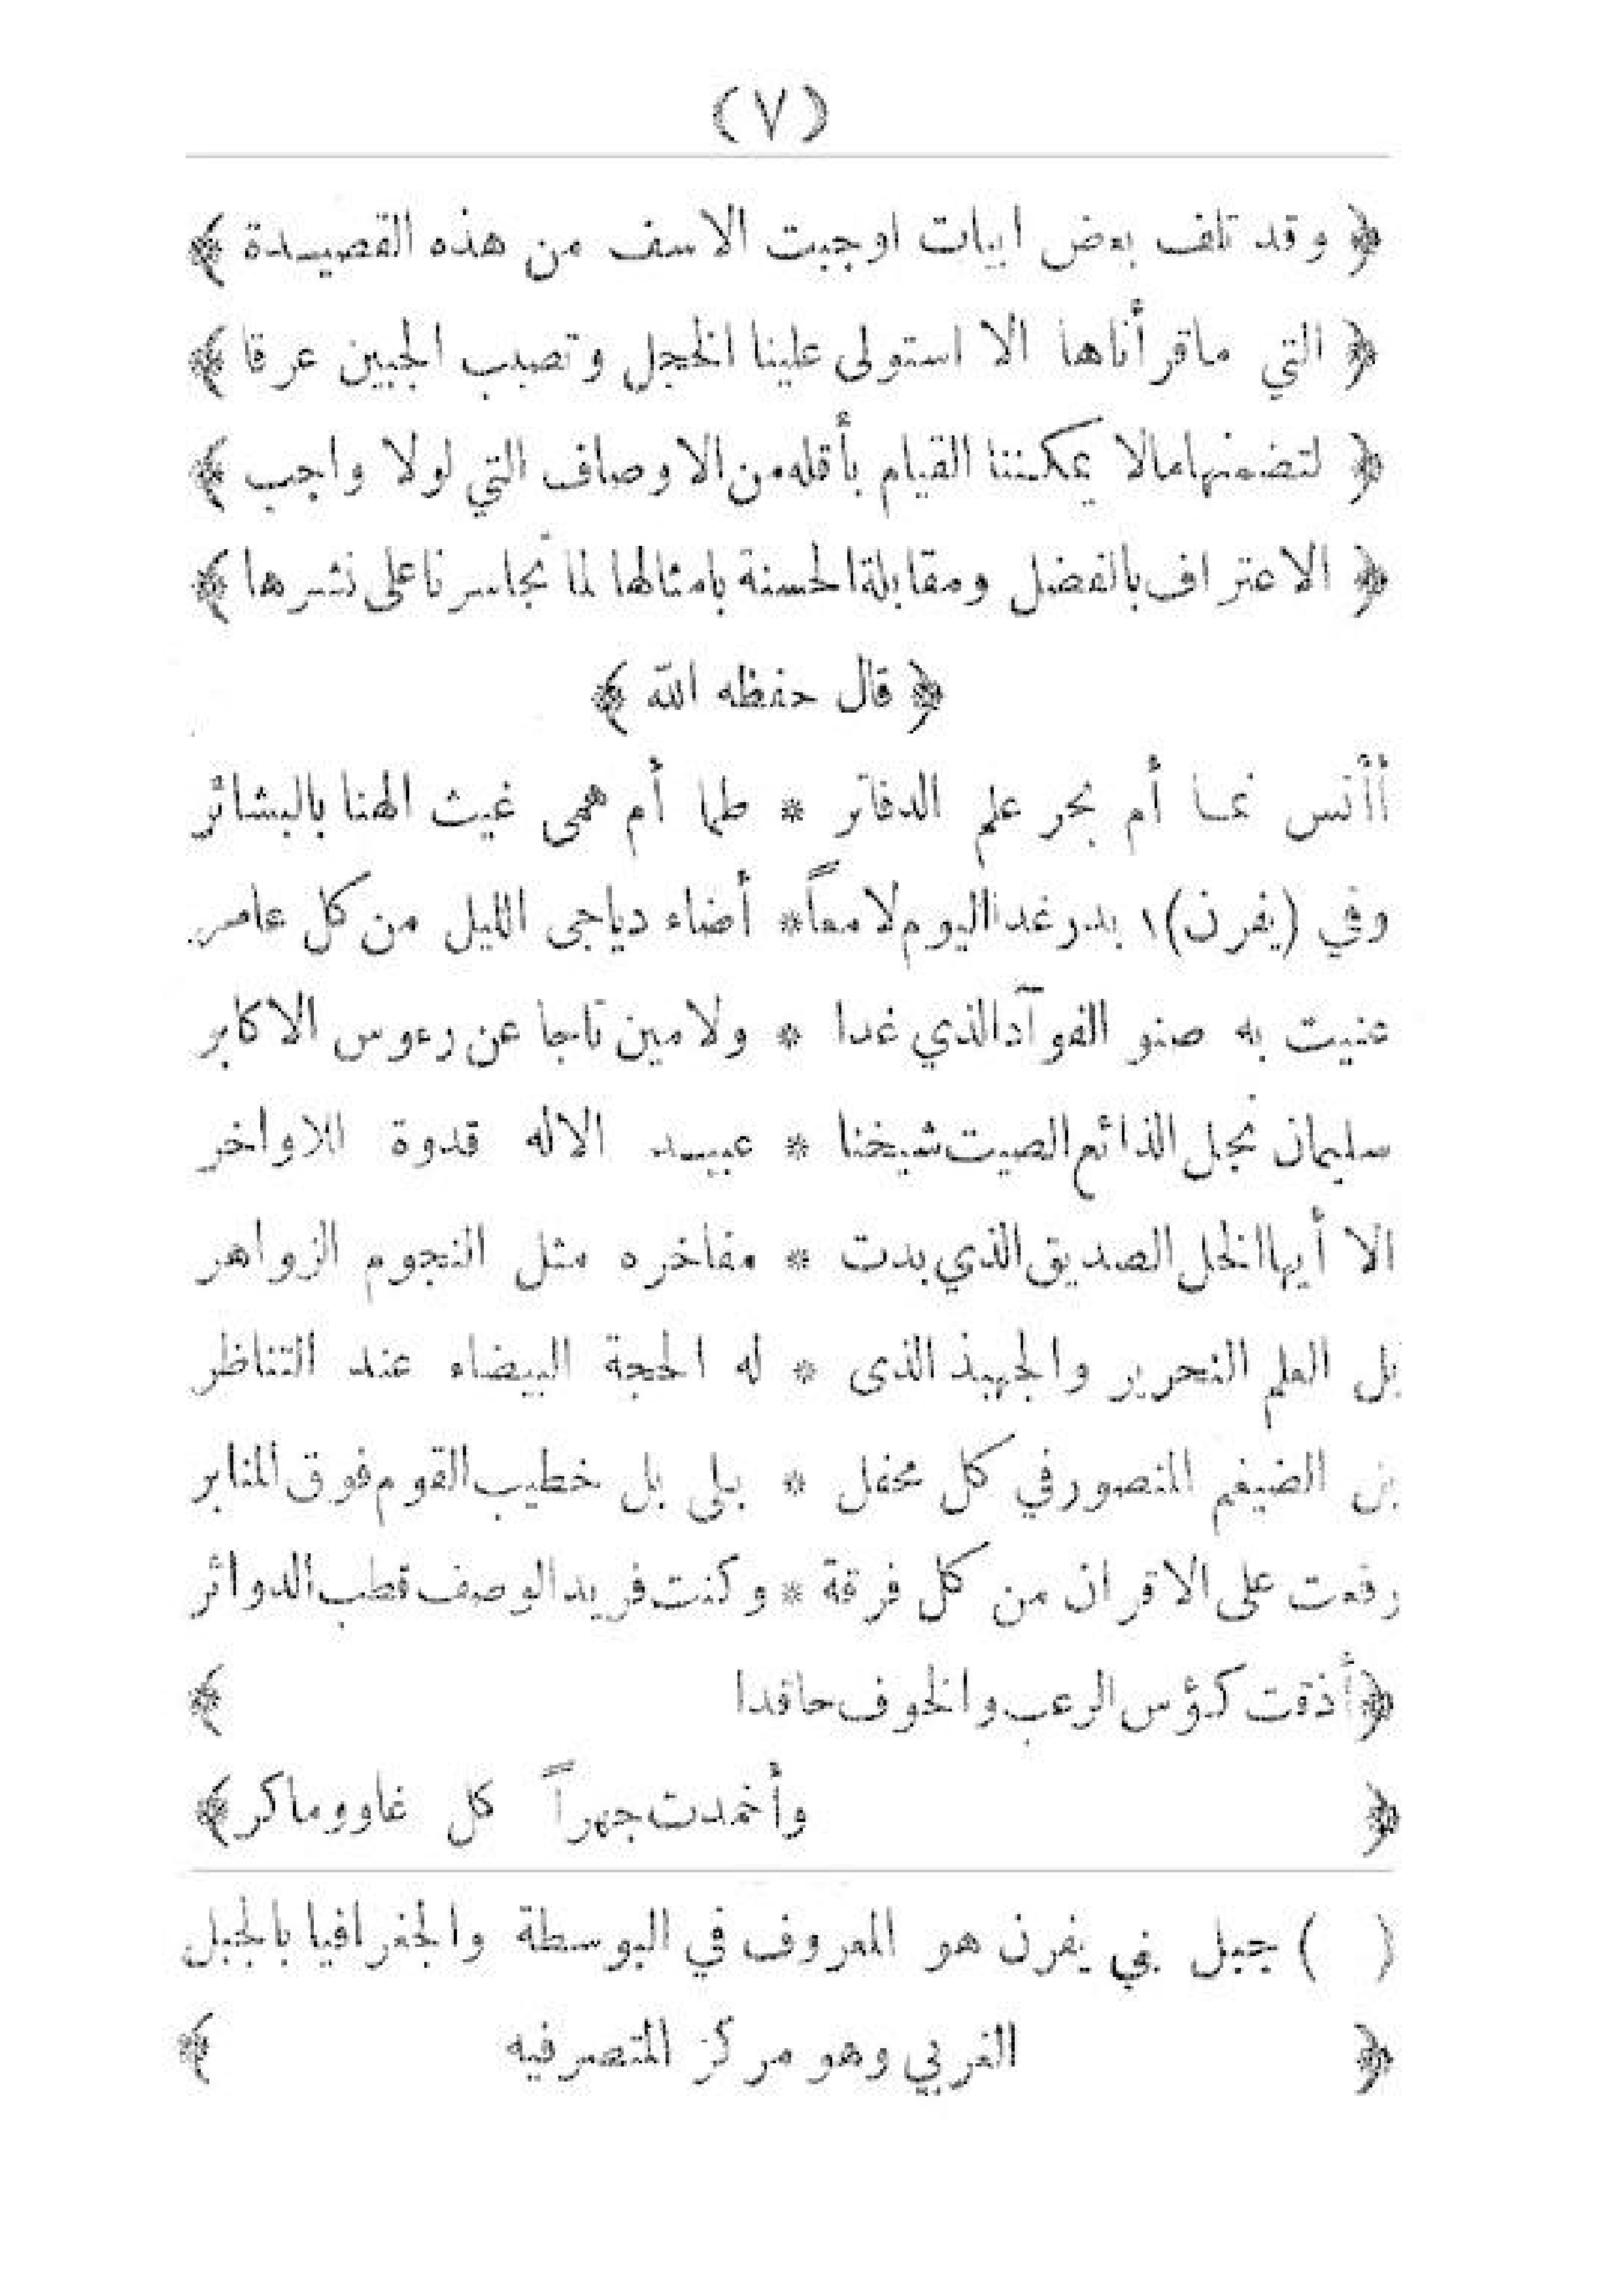 (٧)
﴿ وقد تلف بعض ابيات اوجبت الاسف من هذه القصيدة ﴾
﴿ التي ماقرأناها الا استولى علينا الخجل وتصبب الجبين عرقا ﴾
﴿ لتضمنها مالا يمكننا القيام بأقله من الاوصاف التي لولا واجب ﴾
﴿ الاعتراف بالفضل ومقابلة الحسنة بامثالها لما تجاسرنا على نشرها ﴾
﴿ قال حفظه الله ﴾
أأنس نما أم بحر علم الدفاتر * طما أم همى غيث الهنا بالبشائر
وفي (يفرن)١ بدر غدا اليوم لامعاً * أضاء دياجى الليل من كل عامر
عنيت به صنو الفوآد الذي غدا * ولا مين تاجا عن رءوس الاكابر
سليمان نجل الذائع الصيت شيخنا * عبيد الاله قدوة للاواخر
الا أيها الخل الصديق الذي بدت * مفاخره مثل النجوم الزواهر
بل العلم النحرير والجهبذ الذى * له الحجة البيضاء عند التناظر
بل الضيغم المنصور في كل محفل * بلى بل خطيب القوم فوق المنابر
رفعت على الاقران من كل فرقة * وكنت فريد الوصف قطب الدوائر
﴿ أذقت كؤس الرعب والخوف حاقدا ﴾
﴿ وأخمدت جهراً كل غاو وماكر ﴾
( ) جبل في يفرن هو المعروف في البوسطة والجغرافيا بالجبل
﴿ الغربي وهو مركز المتصرفيه ﴾